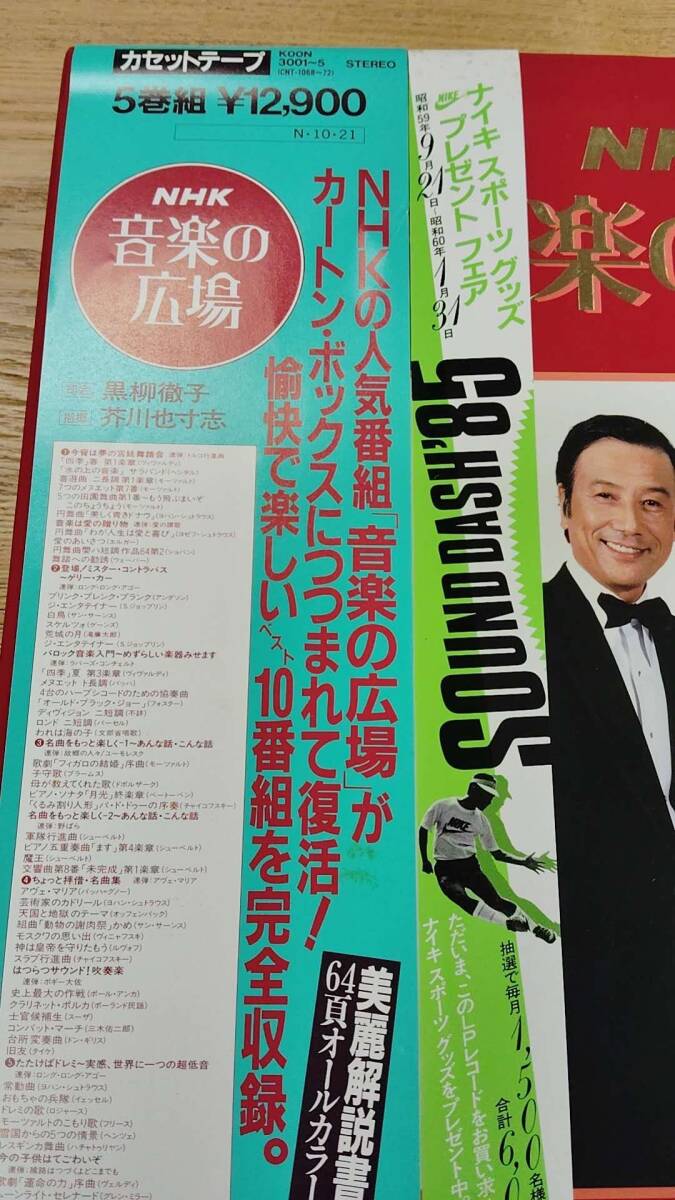 カセットテープ
KOON
3001~5
(CNT-1068~72)
STEREO
5巻組 ¥12,900
N・10・21
NHK
音楽の
広場
黒柳徹子
[指揮] 芥川也寸志
NHKの人気番組「音楽の広場」が
カートン・ボックスにつつまれて復活!
愉快で楽しいベスト10番組を完全収録。
美麗解説書
64頁オールカラー
❶今宵は夢の宮廷舞踏会 連弾:トルコ行進曲
「四季」春 第1楽章(ヴィヴァルディ)
「水の上の音楽」 サラバンド(ヘンデル)
喜遊曲 ニ長調 第1楽章(モーツァルト)
7つのメヌエット第7番(モーツァルト)
5つの田園舞曲第1番~もう飛ぶまいぞ
このちょうちょう(モーツァルト)
円舞曲「美しく青きドナウ」(ヨハン・シュトラウス)
音楽は愛の贈り物 連弾:愛の讃歌
円舞曲「わが人生は愛と喜び」(ヨゼフ・シュトラウス)
愛のあいさつ(エルガー)
円舞曲嬰ハ短調 作品64第2(ショパン)
舞踏への勧誘(ウェーバー)
❷登場!ミスター・コントラバス
~ゲリー・カー
連弾:ロング・ロング・アゴー
プリンク・プレンク・プランク(アンダソン)
ジ・エンタテイナー(S.ジョップリン)
白鳥(サン=サーンス)
スケルツォ(ゲーンズ)
荒城の月(滝廉太郎)
ジ・エンタテイナー(S.ジョップリン)
バロック音楽入門~めずらしい楽器みせます
連弾:ラバーズ・コンチェルト
「四季」夏 第3楽章(ヴィヴァルディ)
メヌエット ト長調(バッハ)
4台のハープシコードのための協奏曲
「オールド・ブラック・ジョー」(フォスター)
ディヴィジョン ニ短調(不詳)
ロンド ニ短調(パーセル)
われは海の子(文部省唱歌)
❸名曲をもっと楽しく-1~あんな話・こんな話
連弾:故郷の人々/ユーモレスク
歌劇「フィガロの結婚」序曲(モーツァルト)
子守歌(ブラームス)
母が教えてくれた歌(ドボルザーク)
ピアノ・ソナタ「月光」終楽章(ベートーベン)
「くるみ割り人形」パ・ド・ドゥーの序奏(チャイコフスキー)
名曲をもっと楽しく-2~あんな話・こんな話
連弾:野ばら
軍隊行進曲(シューベルト)
ピアノ五重奏曲「ます」第4楽章(シューベルト)
魔王(シューベルト)
交響曲第8番「未完成」第1楽章(シューベルト)
❹ちょっと拝借・名曲集 連弾:アヴェ・マリア
アヴェ・マリア(バッハ=グノー)
芸術家のカドリール(ヨハン・シュトラウス)
天国と地獄のテーマ(オッフェンバック)
組曲「動物の謝肉祭」かめ(サン=サーンス)
モスクワの思い出(ヴィニャフスキ)
神は皇帝を守りたもう(ルヴォフ)
スラブ行進曲(チャイコフスキー)
はつらつサウンド!吹奏楽
連弾:ボギー大佐
史上最大の作戦(ポール・アンカ)
クラリネット・ポルカ(ポーランド民謡)
士官候補生(スーザ)
コンバット・マーチ(三木佑二郎)
台所変奏曲(ドン・ギリス)
旧友(タイケ)
❺たたけばドレミ~実感、世界に一つの超低音
連弾:ロング・ロング・アゴー
常動曲(ヨハン・シュトラウス)
おもちゃの兵隊(イェッセル)
ドレミの歌(ロジャース)
モーツァルトのこもり歌(フリース)
雪国からの5つの情景(ヘンツェ)
レスギンカ舞曲(ハチャトゥリヤン)
今の子供はてごわいぞ
連弾:線路はつづくよどこまでも
歌劇「運命の力」序曲(ヴェルディ)
ムーンライト・セレナード(グレン・ミラー)
ナイキ スポーツ グッズ
NIKE プレゼント フェア
昭和59年9月21日-昭和60年1月31日
SOUND DASH '85
NIKE
抽選で毎月1,500名様
合計6,0
ただいま、このLPレコードをお買い求
ナイキ スポーツ グッズをプレゼント中。
NH
楽の